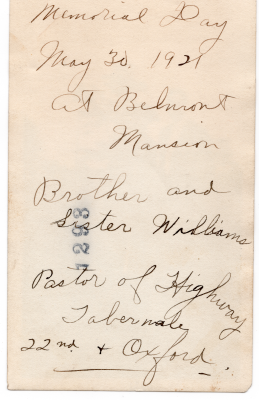 Memorial Day
May 30. 1921
At Belmont
Mansion
Brother and
Sister Williams
1293
Pastor of Highway
Tabernale
22nd. + Oxford.